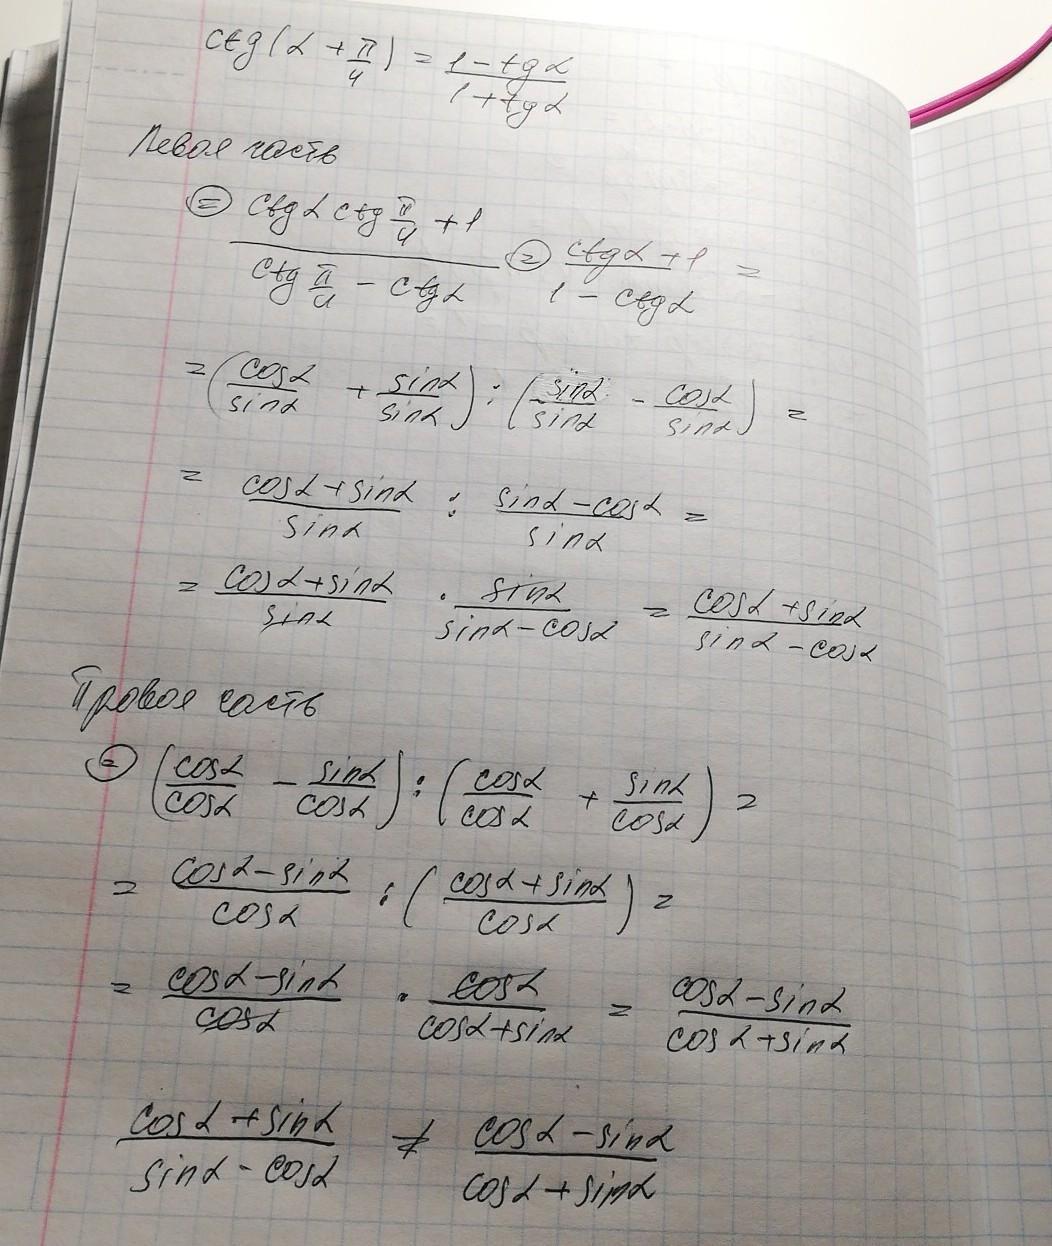 ctg(α + π/4) = (1 - tgα)/(1 + tgα)
Левая часть
= (ctgα ctg π/4 + 1)/(ctg π/4 - ctgα) = (ctgα + 1)/(1 - ctgα) =
= (cosα/sinα + sinα/sinα) : (sinα/sinα - cosα/sinα) =
= (cosα + sinα)/sinα : (sinα - cosα)/sinα =
= (cosα + sinα)/sinα · sinα/(sinα - cosα) = (cosα + sinα)/(sinα - cosα)
Правая часть
= (cosα/cosα - sinα/cosα) : (cosα/cosα + sinα/cosα) =
= (cosα - sinα)/cosα : ((cosα + sinα)/cosα) =
= (cosα - sinα)/cosα · cosα/(cosα + sinα) = (cosα - sinα)/(cosα + sinα)
(cosα + sinα)/(sinα - cosα) ≠ (cosα - sinα)/(cosα + sinα)